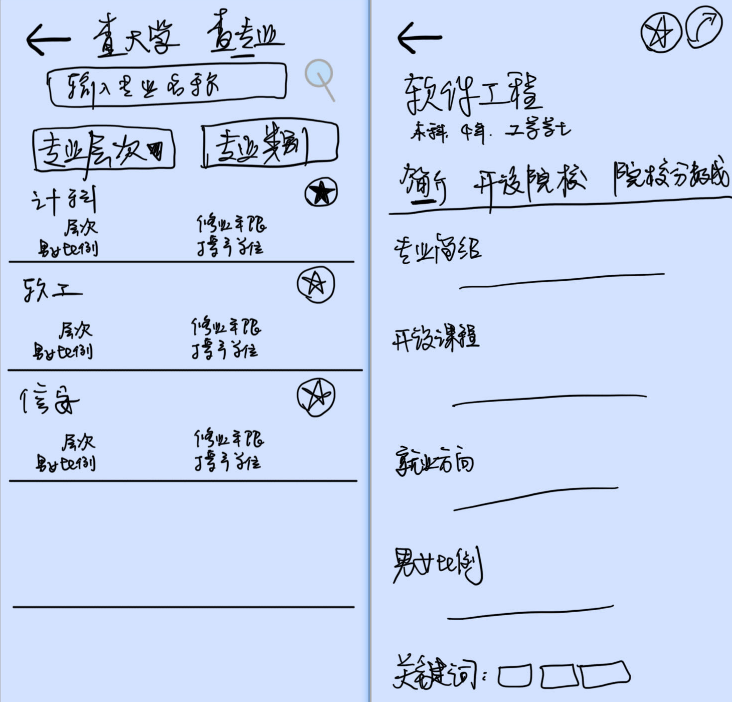 查大学 查专业
输入专业名称
专业层次 专业类别
计科
层次 修业年限
男女比例 授予学位
软工
层次 修业年限
男女比例 授予学位
信安
层次 修业年限
男女比例 授予学位
软件工程
本科 4年. 工学学士
简介 开设院校 院校分数线
专业简绍
开设课程
就业方向
男女比例
关键词: